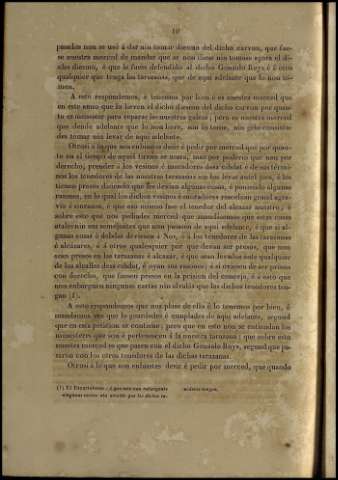 10
pasados non se usó á dar nin tomar diesmo del dicho carvon, que fue-
se nuestra merced de mandar que se non diese nin tomase agora el di-
cho diesmo, é que lo fuese defendido al dicho Gonzalo Roys é á otro
qualquier que tenga las tarazanas, que de aqui adelante que lo non to-
men.
A esto respondemos, é tenemos por bien é es nuestra merced que
en este anno que lo lieven el dicho diesmo del dicho carvon por quan-
to es menester para reparar las nuestras galeas; pero es nuestra merced
que dende adelante que lo non lieve, nin lo tome, nin gelo consinta-
des tomar nin levar de aqui adelante.
Otrosi á lo que nos enbiastes desir é pedir por merced que por quan-
to en el tiempo de aquel turno se usara, mas por poderío que non por
derecho, prender á los vesinos é moradores desa cibdat é de sus térmi-
nos los tenedores de las nuestras tarazanas sin los levar antel jues, é los
tienen presos disiendo que les devian algunas cosas, é poniendo algunas
rasones, en lo qual los dichos vesinos é moradores rescebian grand agra-
vio é sinrason, é que eso mesmo fase el tenedor del alcazar nuestro; é
sobre esto que nos pediades merced que mandasemos que estas cosas
atales nin sus semejantes que non pasasen de aqui adelante, é que si al-
gunas cosas ó debdas deviesen á Nos, ó á los tenedores de las tarazanas
é alcázares, é á otros qualesquier por que devan ser presos, que non
sean presos en las tarazanas é alcázar, é que sean levados ante qualquier
de los alcalles desa cibdat, é oyan sus rasones; é si oviesen de ser presos
con derecho, que fuesen presos en la prision del concejo, é á esto que
non enbarguen ningunas cartas nin alvalás que los dichos tenedores ten-
gan (1).
A esto respondemos que nos plase de ello é lo tenemos por bien, é
mandamos vos que lo guardedes é cunplades de aqui adelante, segund
que en esta peticion se contiene; pero que en esto non se entiendan los
menesteres que son é pertenescen á la nuestra tarazana; que sobre esto
nuestra merced es que pasen con el dicho Gonzalo Roys, segund que pa-
saron con los otros tenedores de las dichas tarazanas.
Otrosi á lo que nos enbiastes desir é pedir por merced, que quando
(1) El Escurialense: é que esto non enbarguen
ningunas cartas nin alvalás que los dichos te-
nedores tengan.